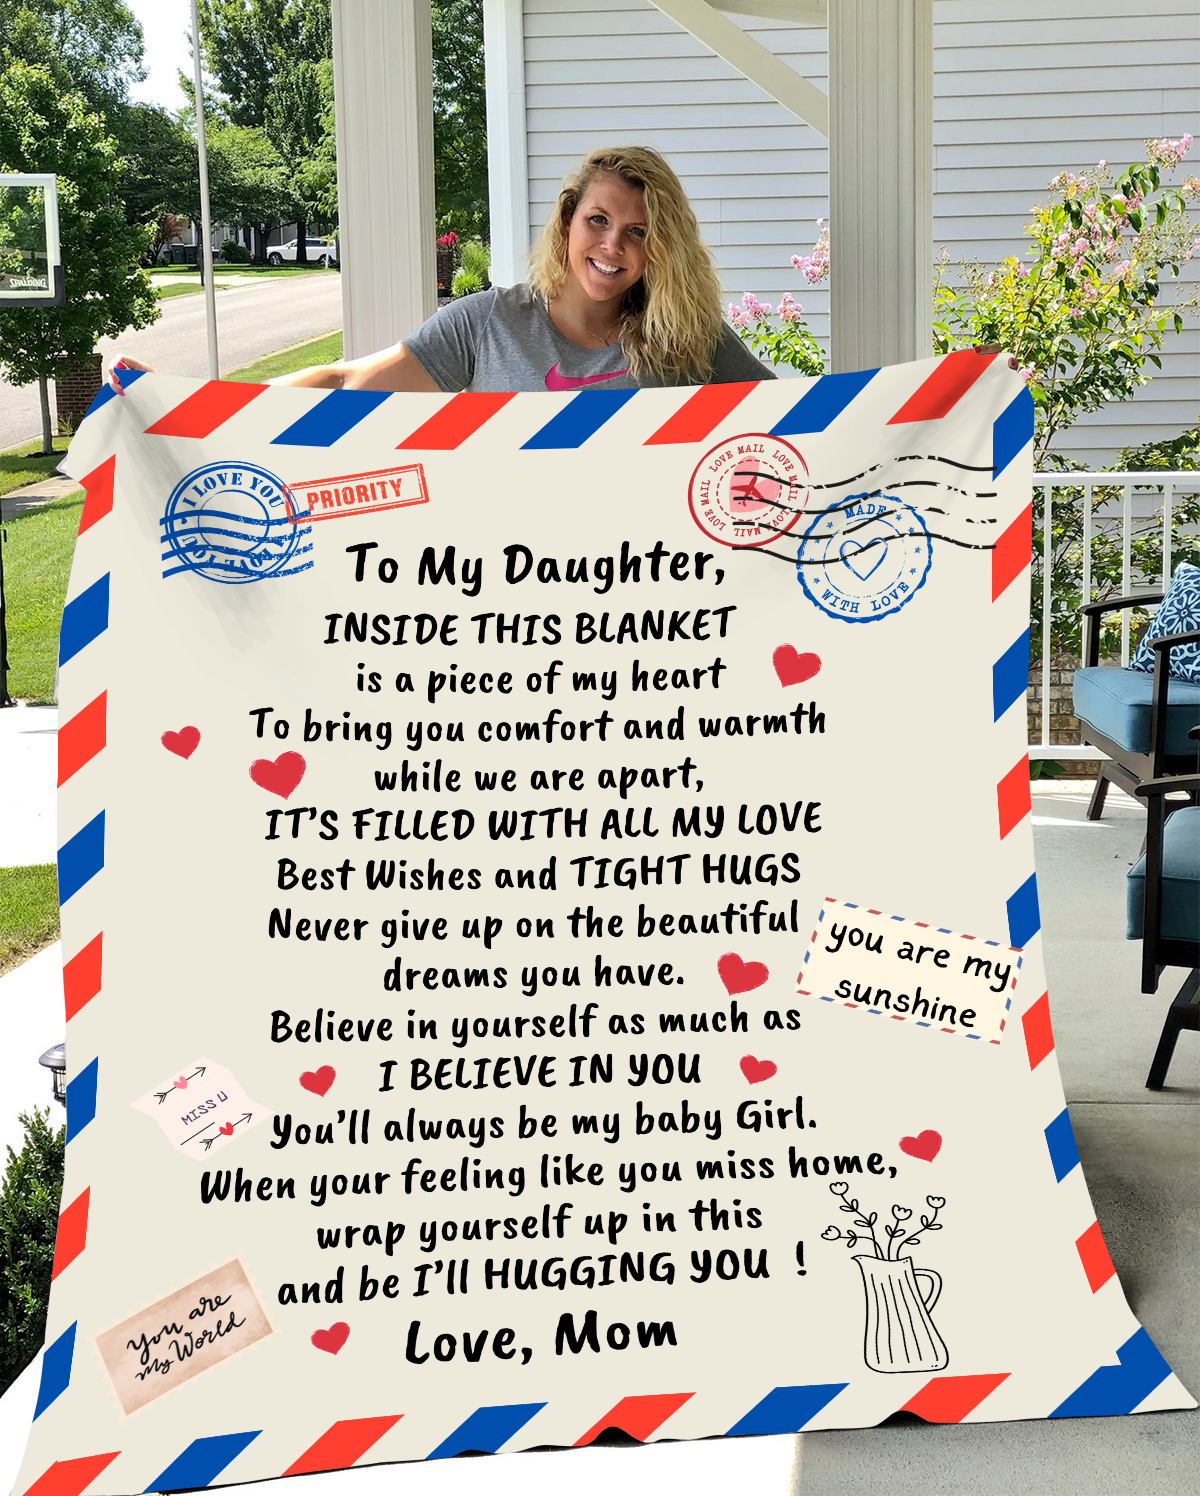 SPALDING
I LOVE YOU
I LOVE YOU
PRIORITY
LOVE MAIL LOVE MAIL LOVE MAIL LOVE MAIL
MADE
WITH LOVE
To My Daughter,
INSIDE THIS BLANKET
is a piece of my heart
To bring you comfort and warmth
while we are apart,
IT'S FILLED WITH ALL MY LOVE
Best Wishes and TIGHT HUGS
Never give up on the beautiful
dreams you have.
you are my
sunshine
Believe in yourself as much as
I BELIEVE IN YOU
MISS U
You'll always be my baby Girl.
When your feeling like you miss home,
wrap yourself up in this
and be I'll HUGGING YOU !
you are
my World
Love, Mom